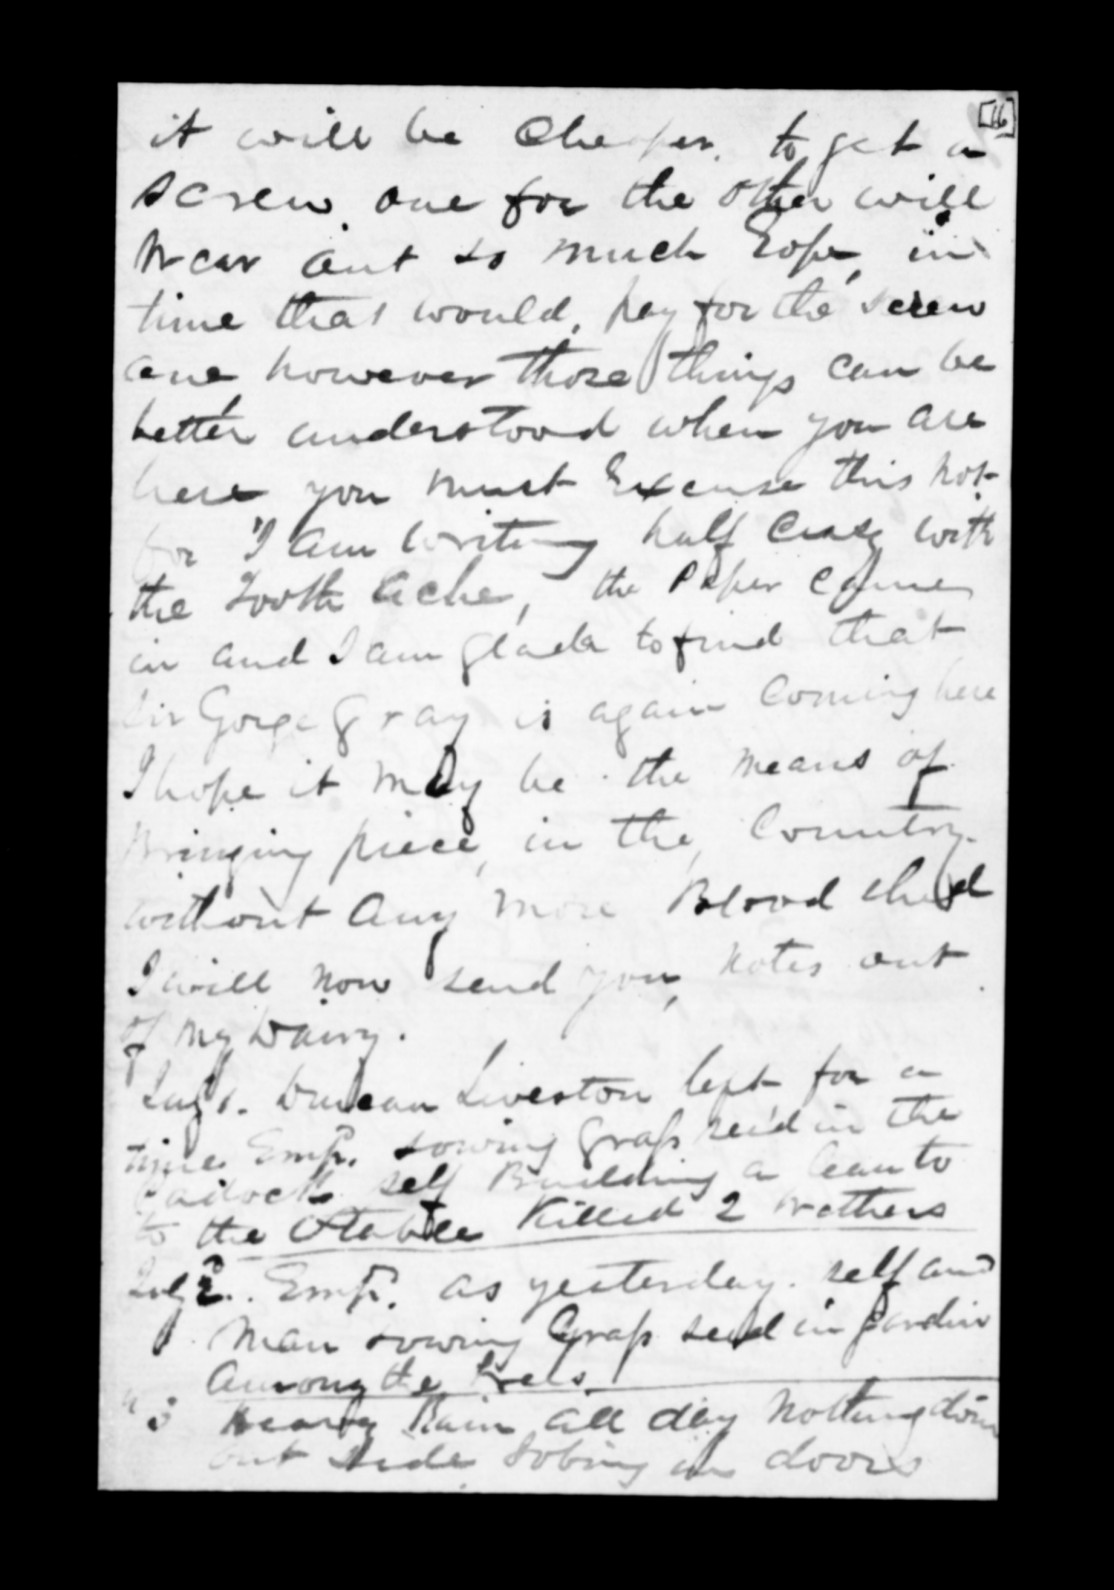 [16]
it will be Cheaper. to get a
screw one for the other will
Wear out so much Rope, in
time that would, pay for the screw
one however those things can be
better understood when you are
here you must Excuse this not
for I am writing half Crasy with
the Tooth Ache, the Paper Came
in and I am glade to find that
Sir Gorge Gray is again Coming here
I hope it may be the means of
Bringing piece, in the, Country.
without Any more Blood shed
I will now send you, notes out
of my Dairy.
July 1. Duncan Liveston left for a
time Empr. sowing Grass seed in the
Padock self Building a leanto
to the Stable Killed 2 Wethers
July 2. Empr. as yesterday. self and
Man sowing Grass seed in Gardin
Among the trees
" 3 Heavy Rain all day Nothing doin
out side Jobing in doors